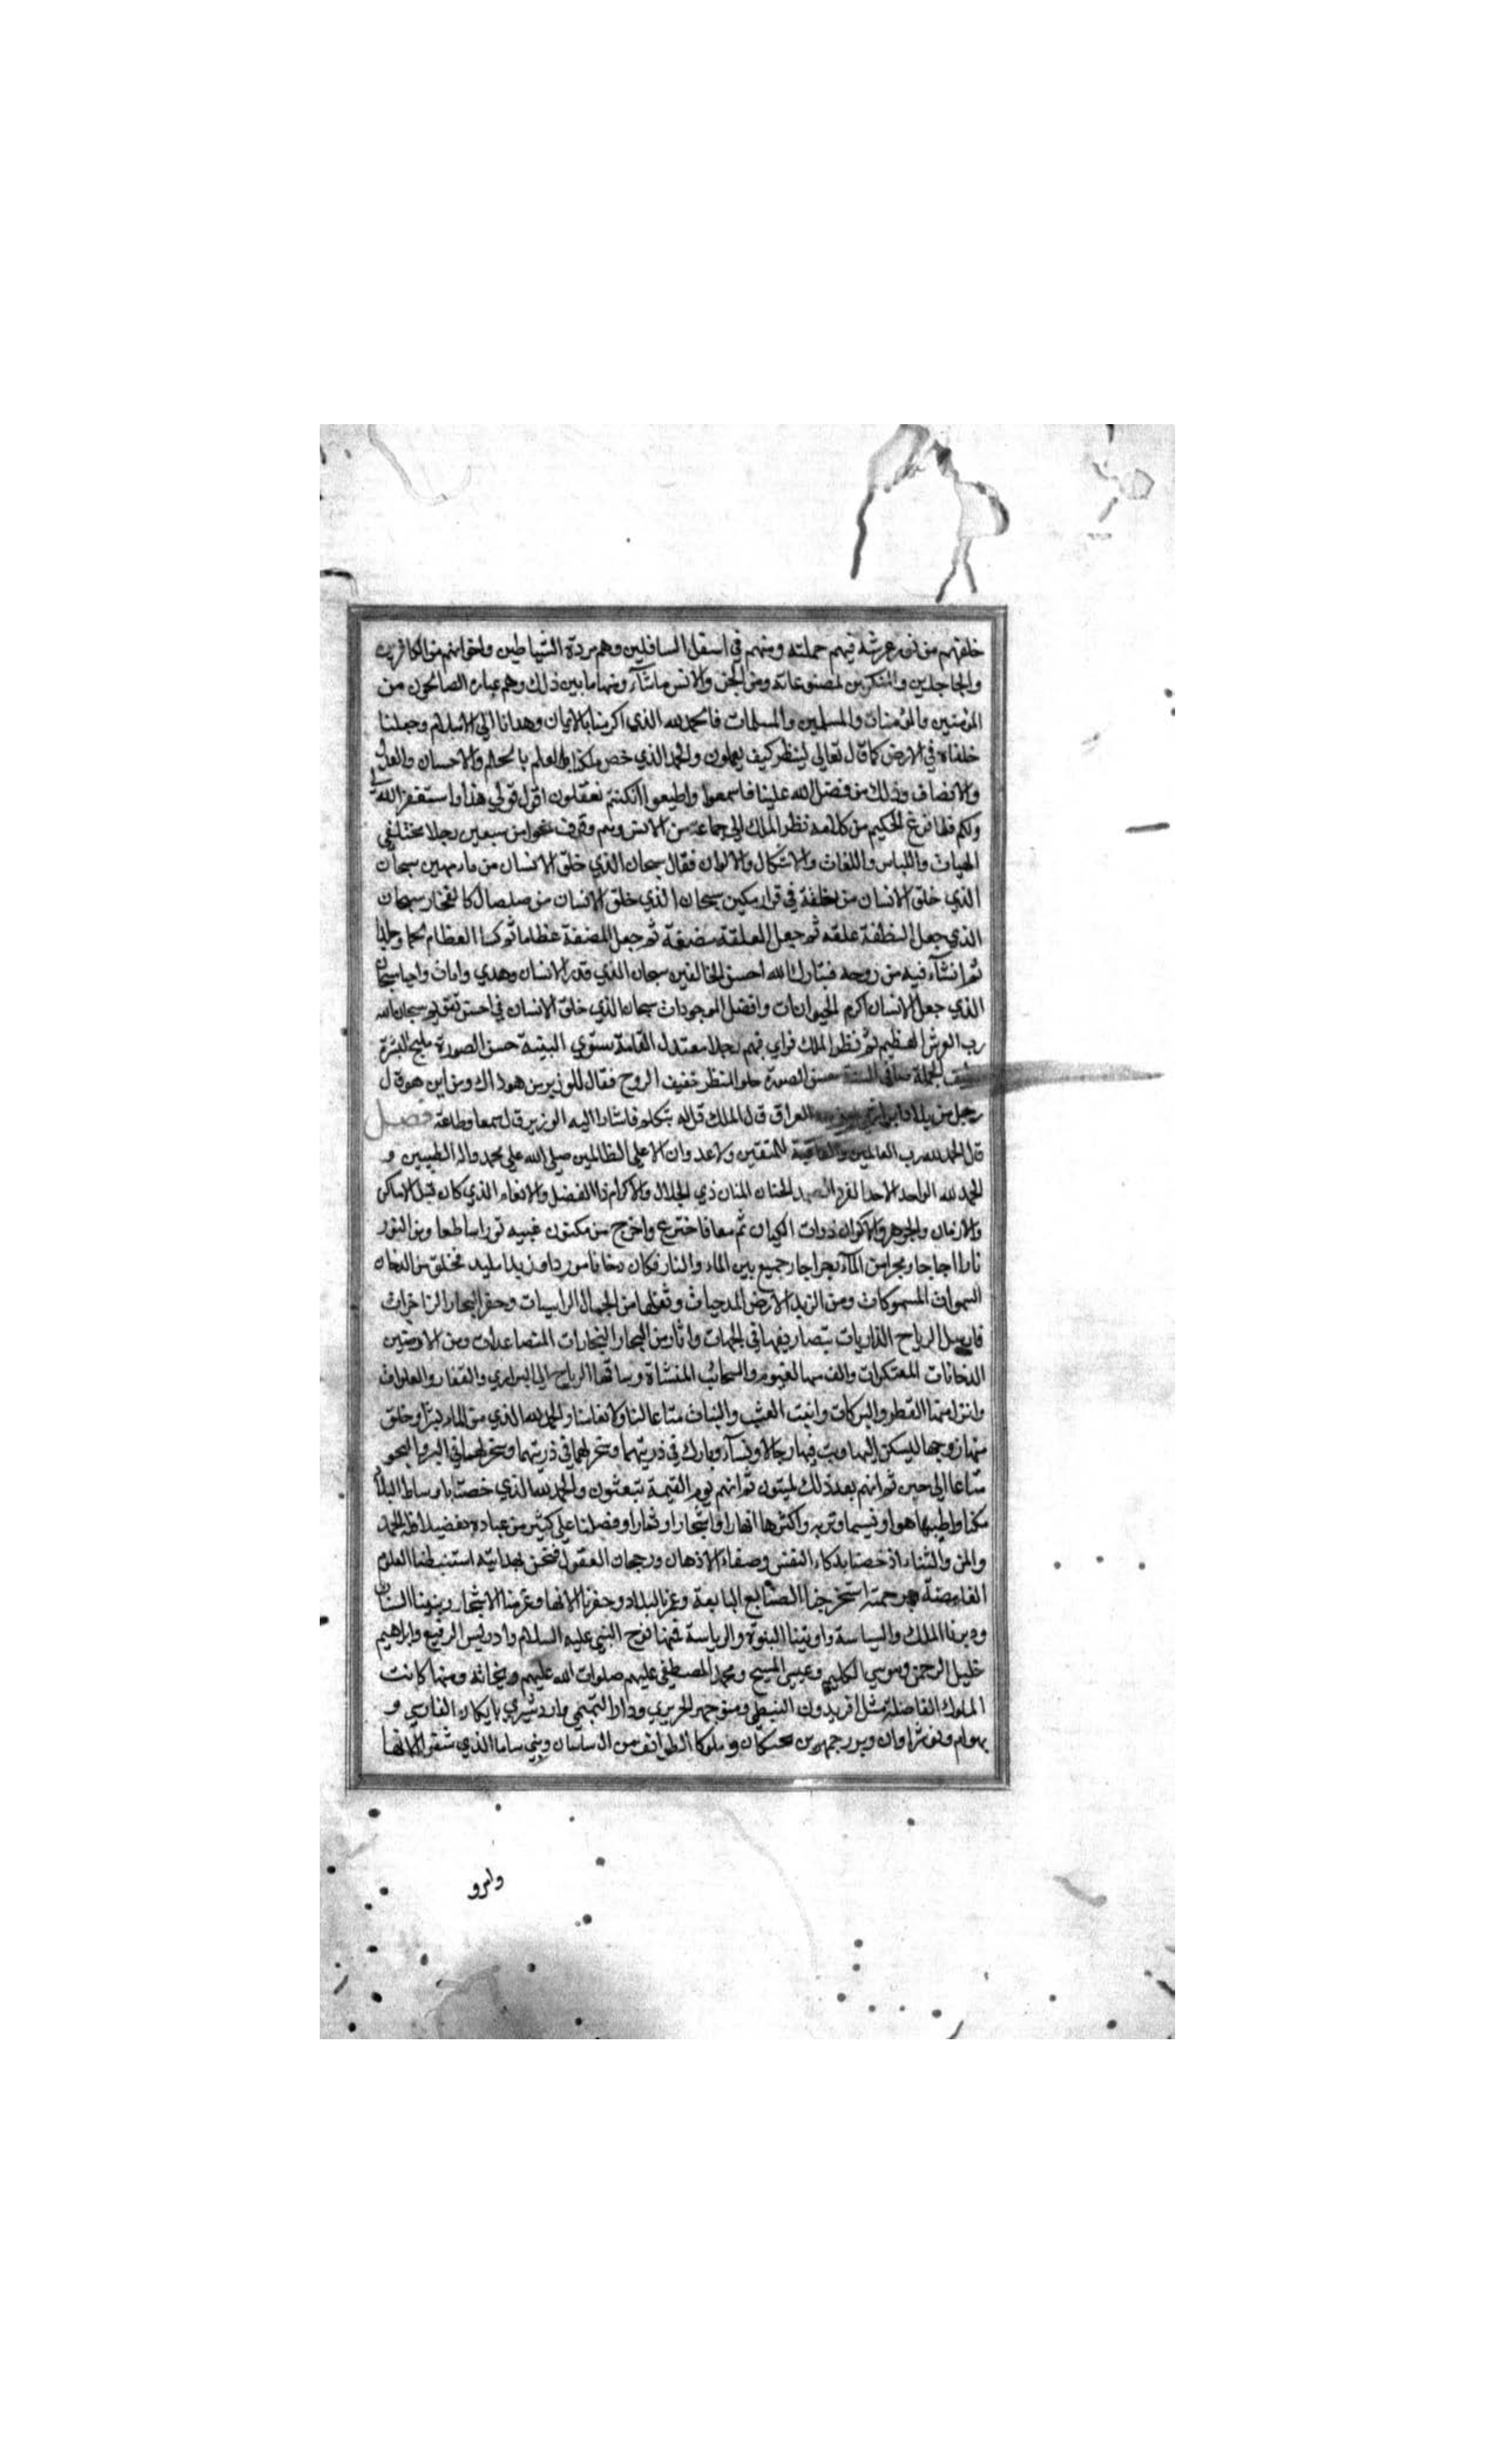 خلقهم من نور عرشه فمنهم حملته ومنهم في اسفل السافلين وهم مردة الشياطين واخوانهم من الكافرين
والجاحدين والمشكرين لمصنوعاته ومن الجن والانس ماشآء ومنها مابين ذلك وهم عباده الصالحون من
المؤمنين والمؤمنات والمسلمين والمسلمات فالحمد لله الذي اكرمنا بالايمان وهدانا الى الاسلام وجعلنا
خلفاء في الارض كما قال تعالى لينظر كيف يعملون والحمد الذي خص ملكنا بالعلم بالحلم والاحسان والعدل
والانصاف وذلك من فضل الله علينا فاسمعوا واطيعوا ان كنتم تعقلون اقول قولي هذا واستغفر الله لي
ولكم فلما فرغ الحكيم من كلامه نظر الملك الى جماعة من الانس وهم وقوف نحو من سبعين رجلا مختلفي
الهيات واللباس واللغات والاشكال والالوان فقال سبحان الذي خلق الانسان من ماء مهين سبحان
الذي خلق الانسان من نطفة في قرار مكين سبحان الذي خلق الانسان من صلصال كالفخار سبحان
الذي جعل النطفة علقه ثم جعل العلقة مضغة ثم جعل المضغة عظاما ثم كسا العظام لحما وجلدا
ثم انشآء فيه من روحه فتبارك الله احسن الخالقين سبحان الذي قدر الانسان وهدي وامات واحيا سبحان
الذي جعل الانسان اكرم الحيوانات وافضل الموجودات سبحان الذي خلق الانسان في احسن تقويم سبحان الله
رب العرش العظيم ثم نظر الملك فراي فيهم رجلا معتدل القامة مستوي البنية حسن الصورة مليح البشرة
الجملة صافي حسن الصورة حلو المنظر خفيف الروح فقال للوزير من هو ذاك ومن اين هو قال
رجل من بلاد ايران العراق قال الملك قل له يتكلم فاشار اليه الوزير قال سمعا وطاعة فصل
قال الحمد لله رب العالمين والعاقبة للمتقين ولاعدوان الا على الظالمين صلى الله على محمد واله الطيبين و
الحمد لله الواحد الاحد الفرد الصمد الحنان المنان ذي الجلال والاكرام ذا الفضل والانعام الذي كان قبل الاماكن
والازمان والجوهر والاكوان ذوات الكيان ثم فاخترع واخرج من مكنون غيبه نورا ساطعا ومن النور
نارا اجاجا وبحرا من المآء رجراجا وجميع بين الماء والنار فكان دخانا وزبدا فخلق من الدخان
السموات المسموكات ومن الزبد الارض المدحيات وثقلها من الجبال الراسيات وحفر البحار الزاخرات
فارسل الرياح الذاريات بتصاريفها في الجهات واثار من البحار البخارات المتصاعدات ومن الارضين
الدخانات المعتكرات والف منها الغيوم والسحائب المنشاة وساقها الرياح الى البراري والقفار والفلوات
وانزل منها القطر والبركات وانبت العشب والنبات متاعا لنا ولانعامنا والحمد لله الذي من الماء بشرا وخلق
منها زوجها ليسكن اليها وبث فيها رجالا ونسآء وبارك في ذريتهما وسخر لهما في ذريتهما وسخر لهما في البر والبحر
متاعا الى حين ثم انهم بعد ذلك لميتون ثم انهم يوم القيمة تبعثون والحمد لله الذي خصنا باوساط البلاد
مكنا واطيبها هوا ونسيما وتربه واكثرها انهارا واشجارا وثمارا وفضلنا على كثير من عباده تفضيلا فله الحمد
والمن والثناء اذ خصنا بذكاء النفس وصفاء الاذهان ورجحان العقول فنحن بهدايته استنبطنا العلوم
الغامضة وبرحمته استخرجنا الصنايع البديعة وعمرنا البلاد وحفرنا الانهار وغرسنا الاشجار وبنينا البنيان
ودبرنا الملك والسياسة واوتينا النبوة والرياسة فمنها نوح النبي عليه السلام وادريس الرفيع وابراهيم
خليل الرحمن وموسي الكليم وعيسي المسيح ومحمد المصطفى عليهم صلوات الله عليهم وريحانه ومنها كانت
الملوك الفاضلة مثل افريدون النبطي ومنوجهر الحريري ودارا التميمي واردشير بابكان الفارسي و
بهرام ونوشراوان وبزرجمهر بن وملوكا الطوائف من ال ساسان وبني ساما الذي شقوا الانها
وامرو